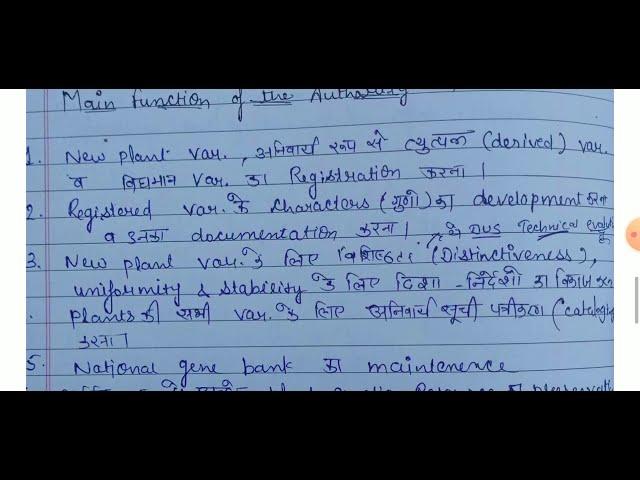 Main function of the Authority
1. New plant var., अनिवार्य रूप से व्युत्पन्न (derived) var.
व विद्यमान var. का Registration करना।
2. Registered var. के characters (गुणों) का development करना
व उनका documentation करना। ये DUS Technical
3. New plant var. के लिए विशिष्टता (Distinctiveness),
uniformity & stability के लिए दिशा-निर्देशों का विकास
plants की सभी var. के लिए अनिवार्य सूची पत्रीकरण (cataloging
करना।
5. National gene bank का maintenence